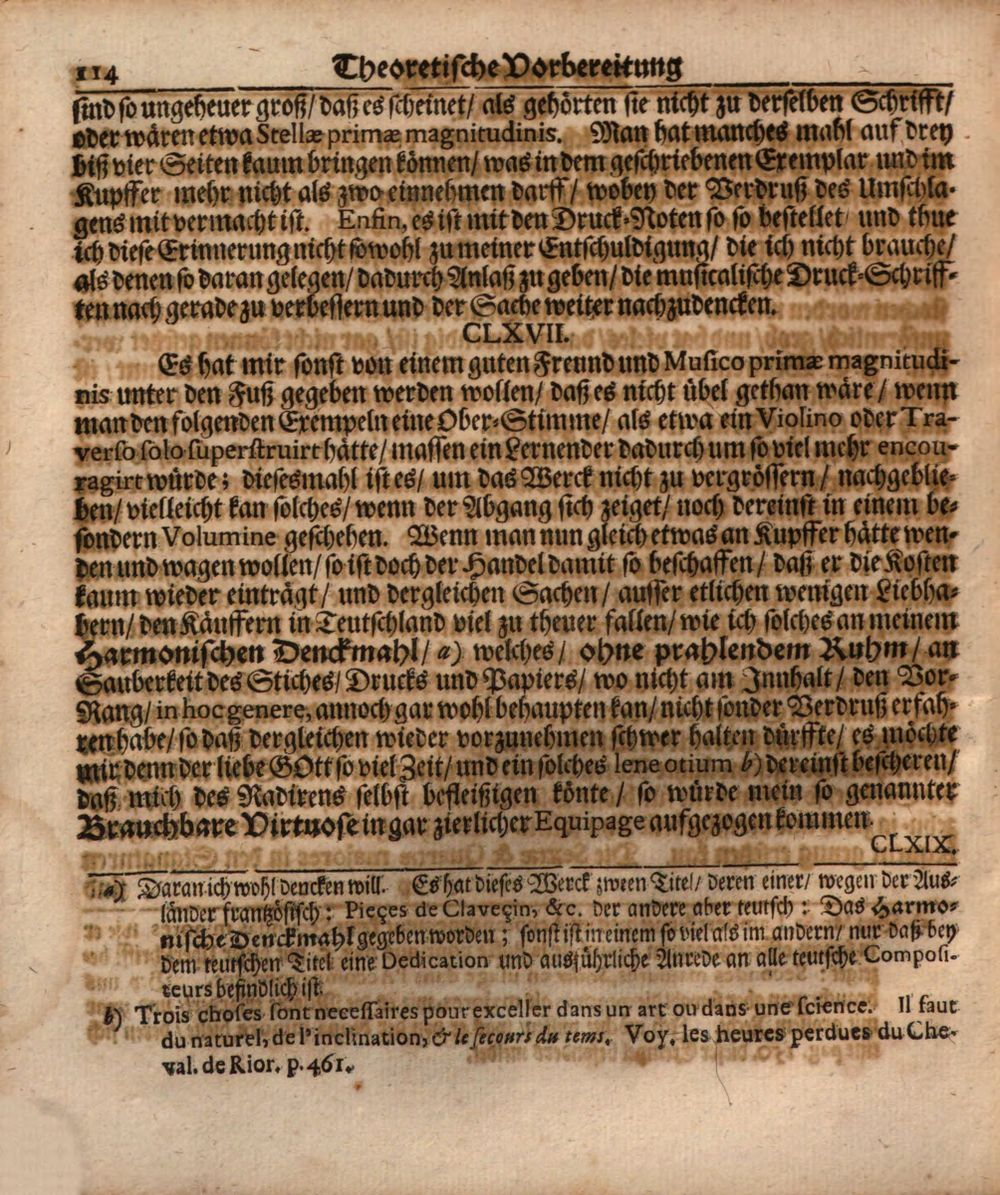 114 Theoretische Vorbereitung
sind so ungeheuer groß/ daß es scheinet/ als gehörten sie nicht zu derselben Schrifft/
oder wären etwa Stellæ primæ magnitudinis. Man hat manches mahl auf drey
biß vier Seiten kaum bringen können/ was in dem geschriebenen Exemplar und im
Kupffer mehr nicht als zwo einnehmen darff/ wobey der Verdruß des Umschla-
gens mit vermacht ist. Enfin, es ist mit den Druck-Noten so so bestellet/ und thue
ich diese Erinnerung nicht sowohl zu meiner Entschuldigung/ die ich nicht brauche/
als denen so daran gelegen/ dadurch Anlaß zu geben/ die musicalische Druck-Schriff-
ten nach gerade zu verbessern und der Sache weiter nachzudencken.
CLXVII.
Es hat mir sonst von einem guten Freund und Musico primæ magnitudi-
nis unter den Fuß gegeben werden wollen/ daß es nicht übel gethan wäre/ wenn
man den folgenden Exempeln eine Ober-Stimme/ als etwa ein Violino oder Tra-
verso solo superstruirt hätte/ massen ein Lernender dadurch um so viel mehr encou-
ragirt würde; diesesmahl ist es/ um das Werck nicht zu vergrössern/ nachgeblie-
ben/ vielleicht kan solches/ wenn der Abgang sich zeiget/ noch dereinst in einem be-
sondern Volumine geschehen. Wenn man nun gleich etwas an Kupffer hätte wen-
den und wagen wollen/ so ist doch der Handel damit so beschaffen/ daß er die Kosten
kaum wieder einträgt/ und dergleichen Sachen/ ausser etlichen wenigen Liebha-
bern/ den Käuffern in Teutschland viel zu theuer fallen/ wie ich solches an meinem
Harmonischen Denckmahl/ a) welches/ ohne prahlendem Ruhm/ an
Sauberkeit des Stiches/ Drucks und Papiers/ wo nicht am Innhalt/ den Vor-
Rang/ in hoc genere, annoch gar wohl behaupten kan/ nicht sonder Verdruß erfah-
ren habe/ so daß dergleichen wieder vorzunehmen schwer halten dürffte/ es möchte
mir denn der liebe GOtt so viel Zeit/ und ein solches lene otium b) dereinst bescheren/
daß mich des Radirens selbst befleißigen könte/ so würde mein so genannter
Brauchbare Virtuose in gar zierlicher Equipage aufgezogen kommen.
CLXIX.
a) Daran ich wohl dencken will. Es hat dieses Werck zween Titel/ deren einer/ wegen der Aus-
länder frantzösisch: Pieçes de Claveçin, &c. der andere aber teutsch: Das Harmo-
nische Denckmahl gegeben worden; sonst ist in einem so viel als im andern/ nur daß bey
dem teutschen Titel eine Dedication und ausführliche Anrede an alle teutsche Composi-
teurs befindlich ist.
b) Trois choses sont necessaires pour exceller dans un art ou dans une science. Il faut
du naturel, de l'inclination, & le secours du tems. Voy. les heures perdues du Che-
val. de Rior. p. 461.